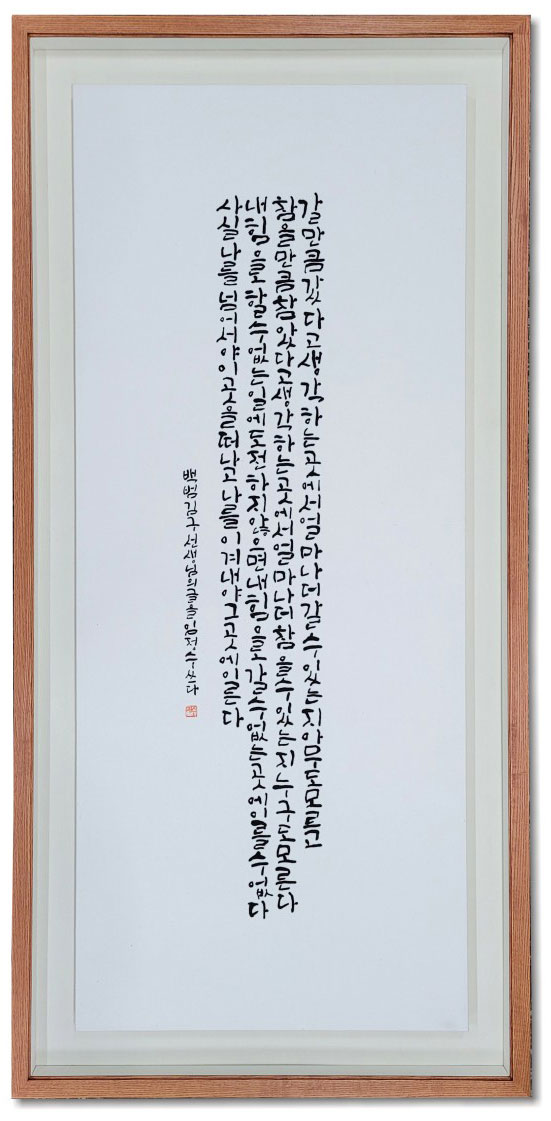 갈만큼갔다고생각하는곳에서얼마나더갈수있는지아무도모르고
참을만큼참았다고생각하는곳에서얼마나더참을수있는지누구도모른다
내힘으로할수없는일에도전하지않으면내힘으로갈수없는곳에이를수없다
사실나를넘어서야이곳을떠나고나를이겨내야그곳에이른다
백범김구선생님의글을임정수쓰다